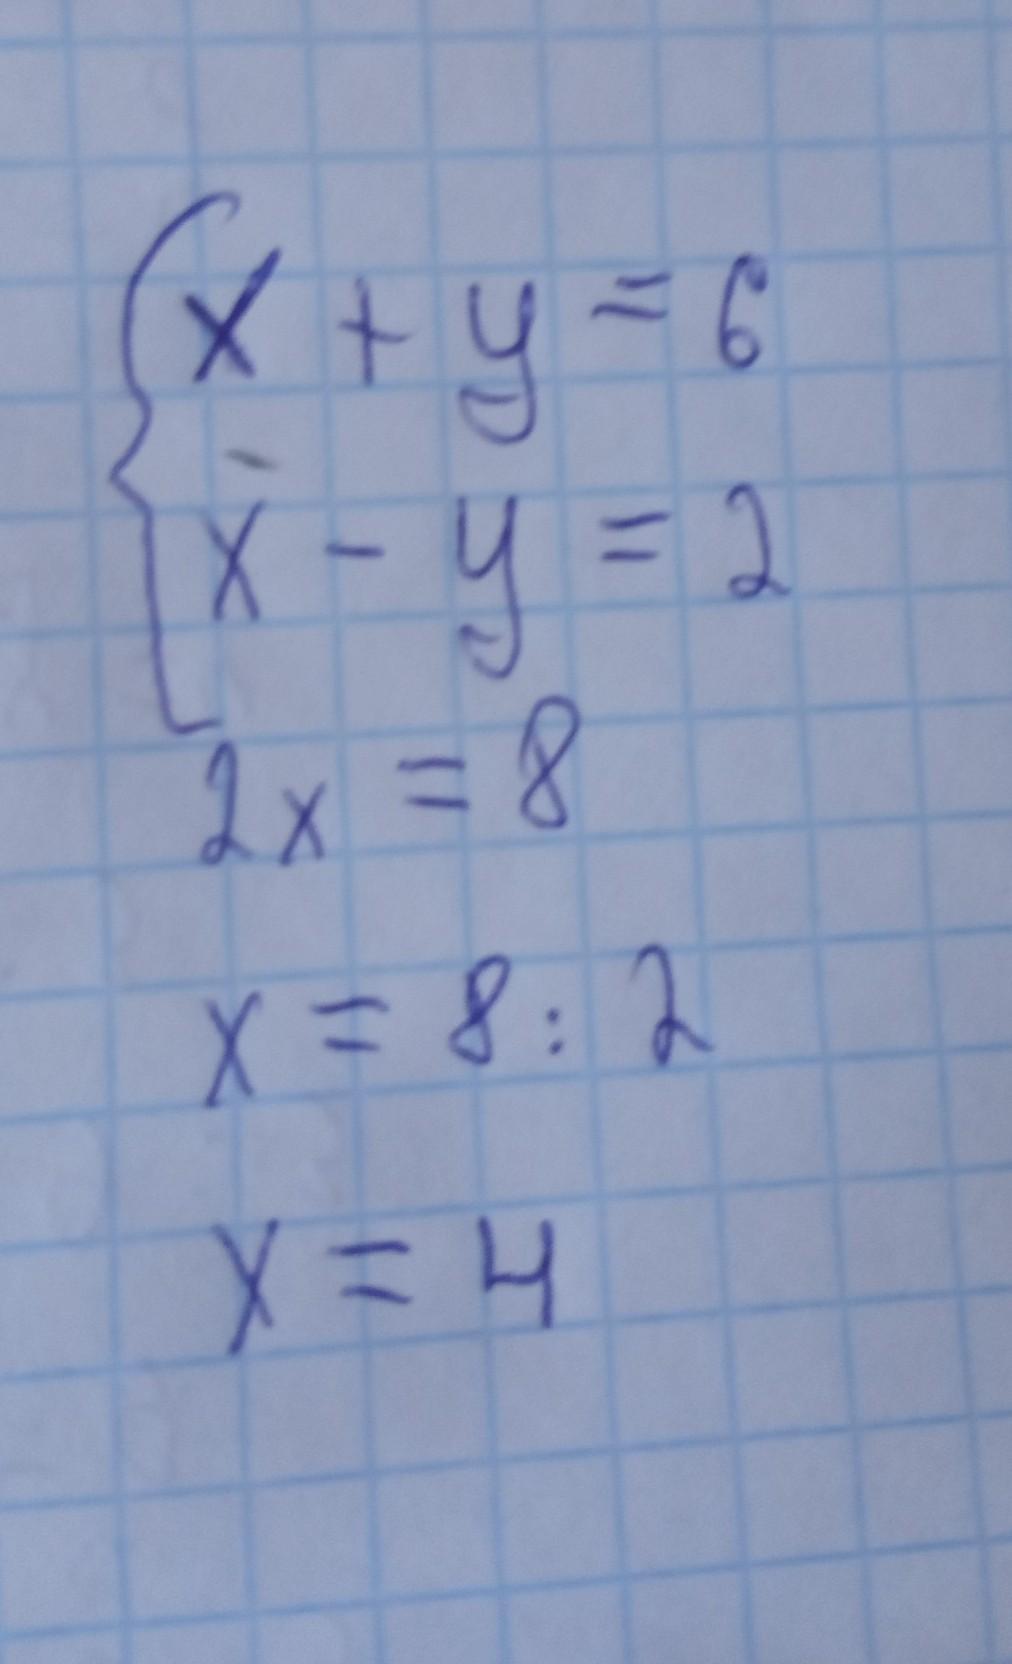 x + y = 6
x - y = 2
2x = 8
x = 8 : 2
x = 4